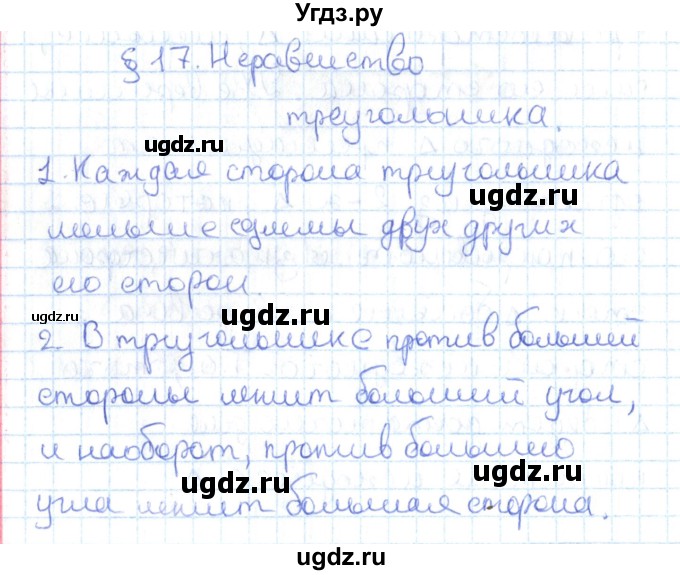 Угдз.ру
§ 17. Неравенство
треугольника.
ugdz.ru
ugdz.ru
1. Каждая сторона треугольника
ugdz.ru
меньше суммы двух других
его сторон.
ugdz.ru
ugdz.ru
2. В треугольнике против большей
стороны лежит больший угол,
и наоборот, против большего
ugdz.ru
ugdz.ru
угла лежит большая сторона.
ugdz.ru